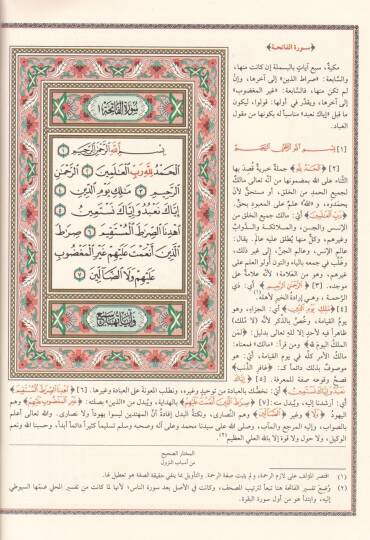 ﴿سورة الفاتحة﴾
سُورَةُ الفَاتِحَةِ ١
بِسْمِ اللَّهِ الرَّحْمَٰنِ الرَّحِيمِ ١
الْحَمْدُ لِلَّهِ رَبِّ الْعَالَمِينَ ٢ الرَّحْمَٰنِ
الرَّحِيمِ ٣ مَالِكِ يَوْمِ الدِّينِ ٤
إِيَّاكَ نَعْبُدُ وَإِيَّاكَ نَسْتَعِينُ ٥
اهْدِنَا الصِّرَاطَ الْمُسْتَقِيمَ ٦ صِرَاطَ
الَّذِينَ أَنْعَمْتَ عَلَيْهِمْ غَيْرِ الْمَغْضُوبِ
عَلَيْهِمْ وَلَا الضَّالِّينَ ٧
وآياتها سبع
مكية، سبع آيات بالبسملة إن كانت منها،
والسابعة: «صراط الذين» إلى آخرها، وإن
لم تكن منها، فالسابعة: «غير المغضوب»
إلى آخرها، ويقدّر في أولها: قولوا، ليكون
ما قبل «إياك نعبد» مناسباً له بكونها من مقول
العباد.
[١] بسم الله الرحمن الرحيم
[٢] ﴿الحمد لله﴾ جملة خبرية قُصد بها
الثناء على الله بمضمونها من أنه تعالى مالك
لجميع الحمد من الخلق، أو مستحق لأن
يحمدوه، و«الله» علم على المعبود بحق.
﴿رب العالمين﴾ أي: مالك جميع الخلق من
الإنس والجن، والملائكة والدواب
وغيرهم، وكلٌّ منها يُطلق عليه عالم. يقال:
عالم الإنس، وعالم الجن، إلى غير ذلك،
وغُلّب في جمعه بالياء والنون أولو العلم على
غيرهم، وهو من العلامة؛ لأنه علامة على
موجده. [٣] ﴿الرحمن الرحيم﴾ أي: ذي
الرحمة، وهي إرادة الخير لأهله.(١)
[٤] ﴿ملك يوم الدين﴾ أي: الجزاء، وهو
يوم القيامة، وخُصّ بالذكر لأنه لا ملك
ظاهراً فيه لأحد إلا لله تعالى بدليل: «لمن
الملك اليوم لله» ومن قرأ: «مالك» فمعناه:
مالك الأمر كله في يوم القيامة، أي: هو
موصوف بذلك دائماً كـ: «غافر الذنب»
فصح وقوعه صفة للمعرفة. [٥] ﴿إياك
نعبد وإياك نستعين﴾ أي: نخصّك بالعبادة من توحيد وغيره، ونطلب المعونة على العبادة وغيرها. [٦] ﴿اهدنا الصراط المستقيم﴾
أي: أرشدنا إليه، ويُبدل منه: [٧] ﴿صراط الذين أنعمت عليهم﴾ بالهداية، ويُبدل من «الذين» بصلته: ﴿غير المغضوب عليهم﴾ وهم
اليهود ﴿ولا﴾ وغير ﴿الضالين﴾ وهم النصارى، ونكتة البدل إفادة أنّ المهتدين ليسوا يهوداً ولا نصارى. والله تعالى أعلم
بالصواب، وإليه المرجع والمآب، وصلى الله على سيدنا محمد وعلى آله وصحبه وسلم تسليماً كثيراً دائماً أبداً، وحسبنا الله ونعم
الوكيل، ولا حول ولا قوة إلا بالله العلي العظيم(٢).
المختار الصحيح
من أسباب النزول
(١) اقتصر المؤلف على لازم الرحمة، ولم يثبت صفة الرحمة. والتأويل بما ينفي حقيقة الصفة هو تعطيل لها.
(٢) وُضع تفسير الفاتحة هنا تبعاً لترتيب المصحف، وكانت في الأصل بعد سورة الناس؛ لأنها لما كانت من تفسير المحلي ضمّها السيوطي
إليه، وابتدأ هو من أول سورة البقرة.